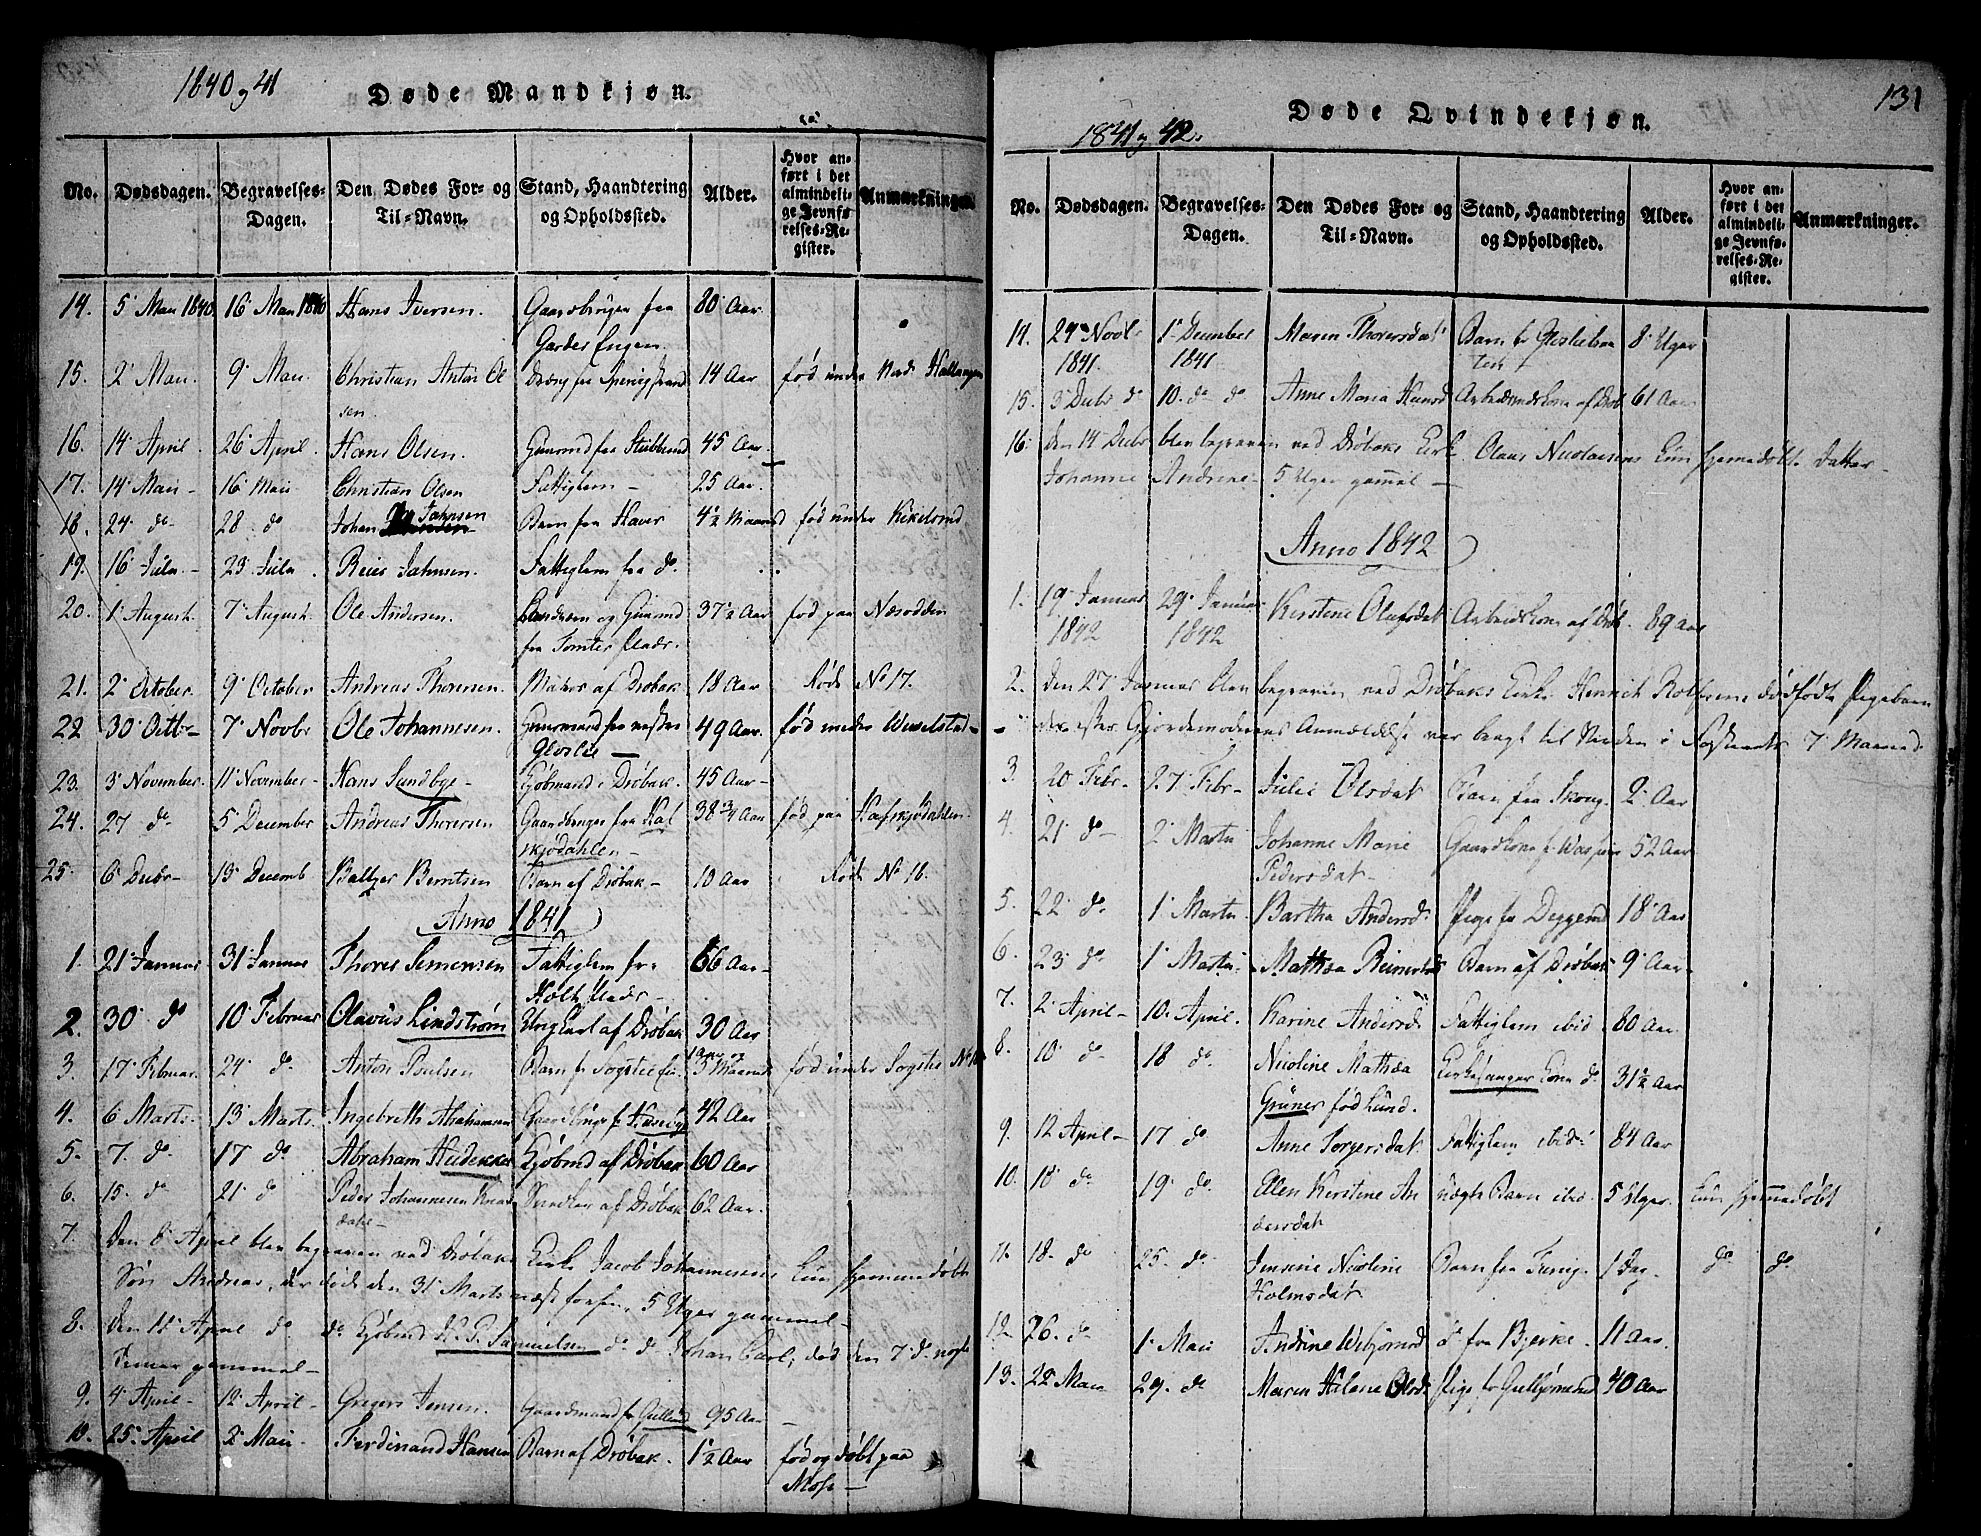 1840 og 41
Døde Mandkjøn.
No. Dødsdagen. Begravelses-Dagen. Den Dødes For- og Til-Navn. Stand, Haandtering og Opholdssted. Alder. Hvor anført i det almindelige Jevnførelses-Register. Anmærkninger.
14. 5 Mai 1840 16 Mai 1840 Hans Iversen. Gaardbruger fra 80 Aar
Garder Engen.
15. 2 Mai. 9 Mai. Christian Anton Ol Dreng fra 14 Aar fød under
sen.
16. 14 April 26 April. Hans Olsen. Huusmd fra 45 Aar
17. 14 Mai 16 Mai Christian Olsen Fattiglem 25 Aar.
18. 24 do 28 do Johan Johnsen Barn fra Haver 4½ Maaned fød under
19. 16 Juli 23 Juli. Reier Johnsen. Fattiglem fra do.
20. 1 August. 7 August. Ole Andersen. og Huusmd 37½ Aar fød paa Næsodden
fra Tomter Plads.
21. 2 October. 9 October Andreas Thoresen. Matros af Drøbak 18 Aar Røde No 17.
22 30 Octbr 7 Novbr Ole Johannesen. Huusmand fra 49 Aar. fød under
Gloslie
23. 3 November. 11 November Hans Sundbye Kjøbmand i Drøbak. 45 Aar
24. 27 do 5 December Andreas Thoresen Gaardbruger fra Haf 38¾ Aar fød paa Hafskjødahlen
skjødahlen
25. 6 Decbr 13 Decemb Baltzer Berntsen Barn af Drøbak 10 Aar Røde No 16.
Anno 1841
1. 21 Januar 31 Januar Thores Simensen Fattiglem fra 66 Aar
Holt Plads
2. 30 do 10 Februar Olavus Lindstrøm Ungkarl af Drøbak 30 Aar
3. 17 Februar. 24 do. Anton Poulsen Barn fr 1 Aar og 3 Maaned fød under
4. 6 Marts 13 Marts. Ingebreth Abrahamsen Gaardbruger fr 42 Aar
5. 7. do 17 do Abraham Kjøbmd af Drøbak 60 Aar
6. 15. do 21 do Peder Johannesen af Drøbak 62 Aar.
7. Den 8 April blev begraven ved Drøbaks Kirke Jacob Johannesens hjemmedøbte
Søn Andreas, der døde den 31 Marts næst forhen, 5 Uger gammel
8. Den 11 April do do Kjøbmd H. P. Samuelsen do do Johan Carl; død den 7 do
gammel
9. 4 April 12 April Gregers Jensen. Gaardmand fr 95 Aar
10. 25 April 2 Mai Ferdinand Hansen Barn af Drøbak. 1½ Aar fød og døbt paa
Moss
131
Døde Qvindekjøn.
1841 og 42.
No. Dødsdagen. Begravelses-Dagen. Den Dødes For- og Til-Navn. Stand, Haandtering og Opholdssted. Alder. Hvor anført i det almindelige Jevnførelses-Register. Anmærkninger.
14. 24 Novbr 1 December Maren Thoresdat Barn fr 8 Uger
1841. 1841
15. 3 Decbr do 10. do do Anne Maria Hansd Arbeidsmdskone af Drøb 61 Aar
16. den 14 Decbr blev begraven ved Drøbaks Kirke Olaus Nicolaisens hjemmedøbte Datter
Johanne Andrine 5 Uger gammel
Anno 1842
1. 19 Januar 29 Januar Kirstine Olufsdat Arbeidskone af Drøb. 89 Aar
1842 1842
2. Den 27 Januar blev begraven ved Drøbaks Kirke Henrich Rolfsens dødfødte Pigebarn
der efter Gjordemoderens Anmældelse var bragt til Verden i Fosterets 7 Maaned
3. 20 Febr 27 Febr Julie Olsdat Barn fra Skoug. 2 Aar
4. 21 do 2 Marts Johanne Marie Gaardkone f 52 Aar
Pedersdat
5. 22 do 1 Marts Bartha Andersd Pige fr Deggerud 18 Aar
6. 23 do 1 Marts Mathea Reinertsd Barn af Drøbak 9 Aar
7. 2 April 10. April. Karine Andersd Fattiglem ibid 80 Aar.
8. 10 do 18 do. Nicoline Mathea Kirkesanger Kone do 31½ Aar
Grüner fød Lund.
9. 12 April 17 do Anne Torgersdat Fattiglem ibid 84 Aar
10. 18 do 19 do. Elen Kirstine An uægte Barn ibid. 5 Uger. hjemmedøbt
dersdat
11. 18. do 25. do. Jensine Nicoline Barn fra 1 Dag do do
Holmsdat
12. 26. do 1 Mai Andrine do fra Bjerke. 11 Aar.
13. 22 Mai 29. do Maren Helene Olsd Pige fr 40 Aar